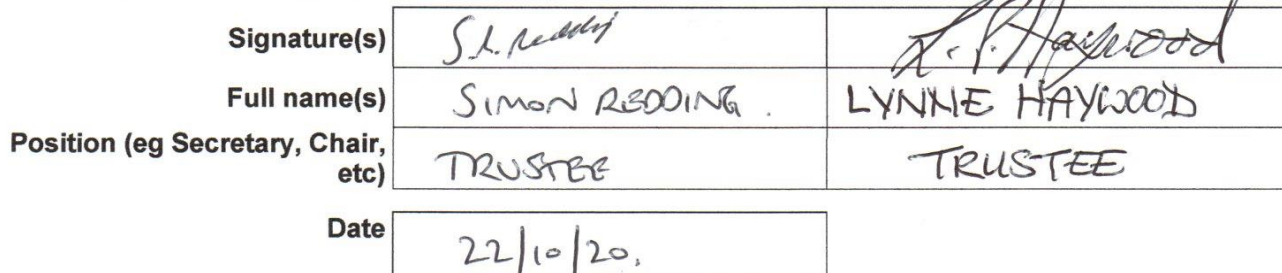 Signature(s) S.L. Redding L. P. Haywood
Full name(s) SIMON REDDING. LYNNE HAYWOOD
Position (eg Secretary, Chair, etc) TRUSTEE TRUSTEE
Date 22/10/20.